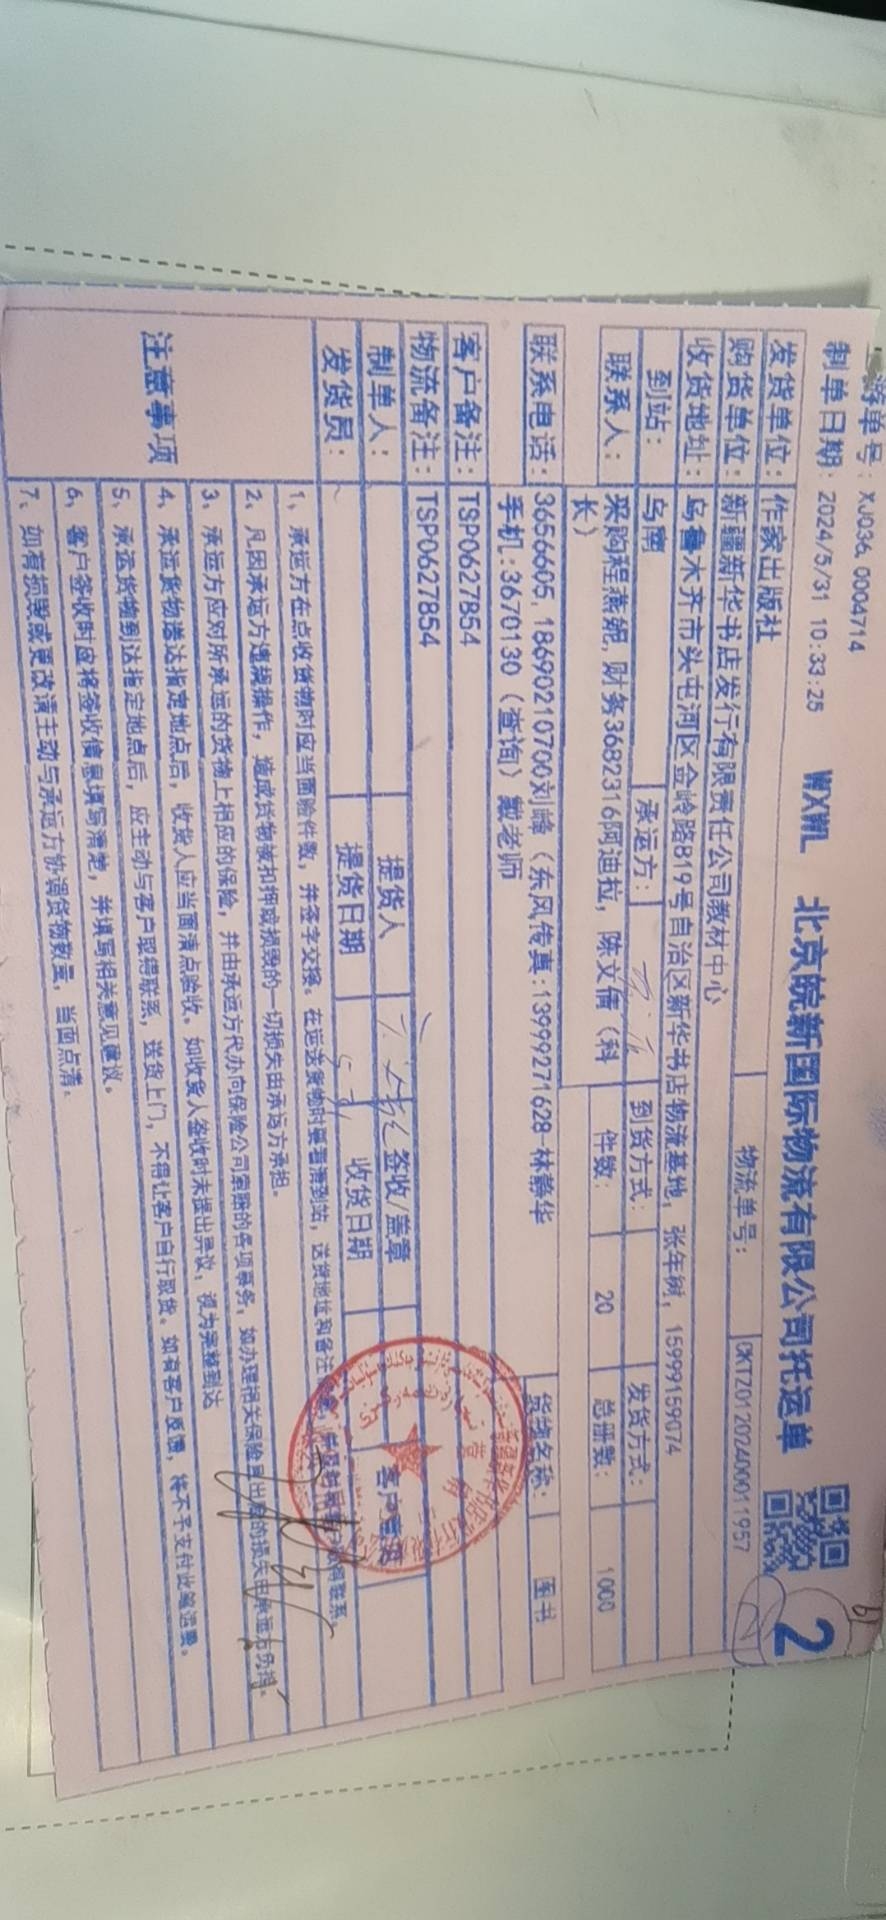 单号：XJ036, 0004714
制单日期：2024/5/31 10:33:25 WXWL 北京皖新国际物流有限公司托运单 2
发货单位：作家出版社 物流单号：CKTZ0120240001195?
购货单位：新疆新华书店发行有限责任公司教材中心
收货地址：乌鲁木齐市头屯河区金岭路819号自治区新华书店物流基地，张年树，15999159074
到站：乌南 承运方： 到货方式： 发货方式：
联系人：采购程燕妮, 财务3682316阿迪拉，陈文倩（科长） 件数：20 总册数：1000
联系电话：3656605, 18690210700刘峰（东风传真:13999271628-林静华 货物名称：图书
手机:3670130（查询）戴老师
客户备注：TSP0627854
物流备注：TSP0627854
制单人： 提货人 签收/盖章 客户意见
发货员： 提货日期 收货日期
注意事项
1、承运方在点收货物时应当面验件数，并签字交接。在运送货物时要看清到站，送货地址和备注
2、凡因承运方违规操作，造成货物被扣押或损毁的一切损失由承运方承担。
3、承运方应对所承运的货物上相应的保险，并由承运方代办向保险公司索赔的各项事务，如办理相关保险
4、承运货物送达指定地点后，收货人应当面清点验收。如收货人签收时未提出异议，视为完整到达
5、承运货物到达指定地点后，应主动与客户取得联系，送货上门，不得让客户自行取货。如有客户反馈，将不予支付此笔运费。
6、客户签收时应将签收信息填写清楚，并填写相关意见建议。
7、如有损毁或更改请主动与承运方协调货物数量，当面点清。